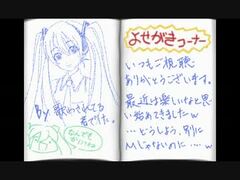 By 歌わされてる
者でした。
なんども
よせがきコーナー
いつもご視聴
ありがとうございます。
最近は楽しいなと思
い始めてきましたw
…どうしよう、別に
Mじゃないのに……w